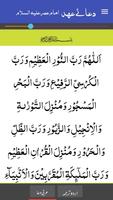 دعائے عهد امام عصر علیہ السلام
اَللّٰهُمَّ رَبَّ النُّوْرِ الْعَظِيْمِ وَ رَبَّ
الْكُرْسِيِّ الرَّفِيْعِ وَ رَبَّ الْبَحْرِ
الْمَسْجُوْرِ وَ مُنْزِلَ التَّوْرٰيةِ وَ
الْاِنْجِيْلِ وَ الزَّبُوْرِ وَ رَبَّ الظِّلِّ
وَ الْحَرُوْرِ وَ مُنْزِلَ الْقُرْاٰنِ الْعَظِيْمِ وَ
رَبَّ الْمَلٰٓئِكَةِ الْمُقَرَّبِيْنَ وَ الْاَنْبِيَآءِ